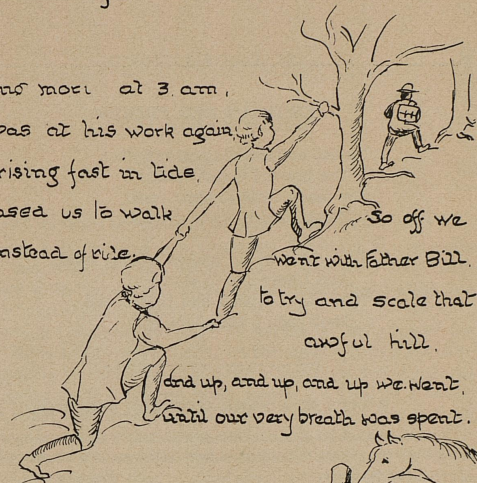 no more at 3 am,
was at his work again
rising fast in tide,
used us to walk
instead of ride.
So off we
went with Father Bill.
to try and scale that
awful hill.
and up, and up, and up we went,
until our very breath was spent.